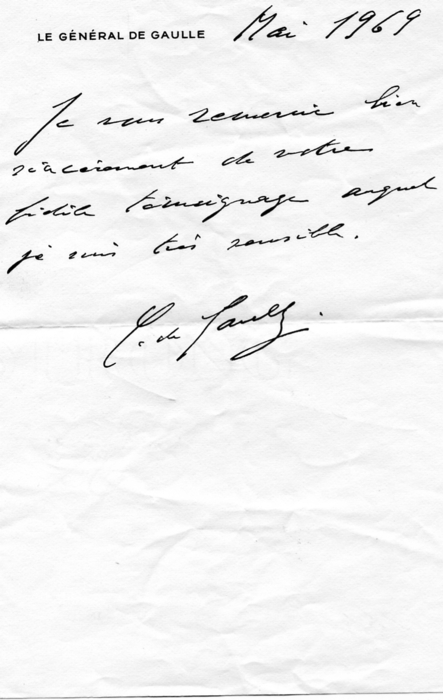 LE GÉNÉRAL DE GAULLE Mai 1969
Je vous remercie bien
sincèrement de votre
fidèle témoignage auquel
je suis très sensible.
C. de Gaulle.